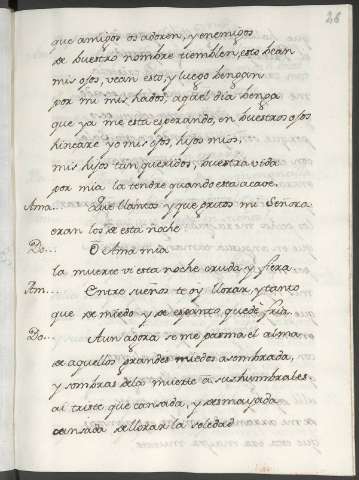 26
que amigos os adoren, y enemigos
de buestro nombre tiemblen, esto bean
mis ojos, vean esto, y luego bengan
por mi mis hados, aquel dia benga
que ya me esta esperando, en buestros ojos
hincare yo mis ojos, hijos mios,
mis hijos tan queridos, buestra vida
por mia la tendre quando esta acave.
Ama... Que llantos y que gritos mi Señora
eran los de esta noche
Do... O Ama mia
la muerte vi esta noche cruda y fiera
Am... Entre sueños te oy llorar, y tanto
que de miedo y de espanto quede fria.
Do... Aun agora se me pasma el alma
de aquellos grandes miedos asombrada,
y sombras dela muerte a sus humbrales
ai triste que cansada, y desmayada
cansada de llorar la soledad